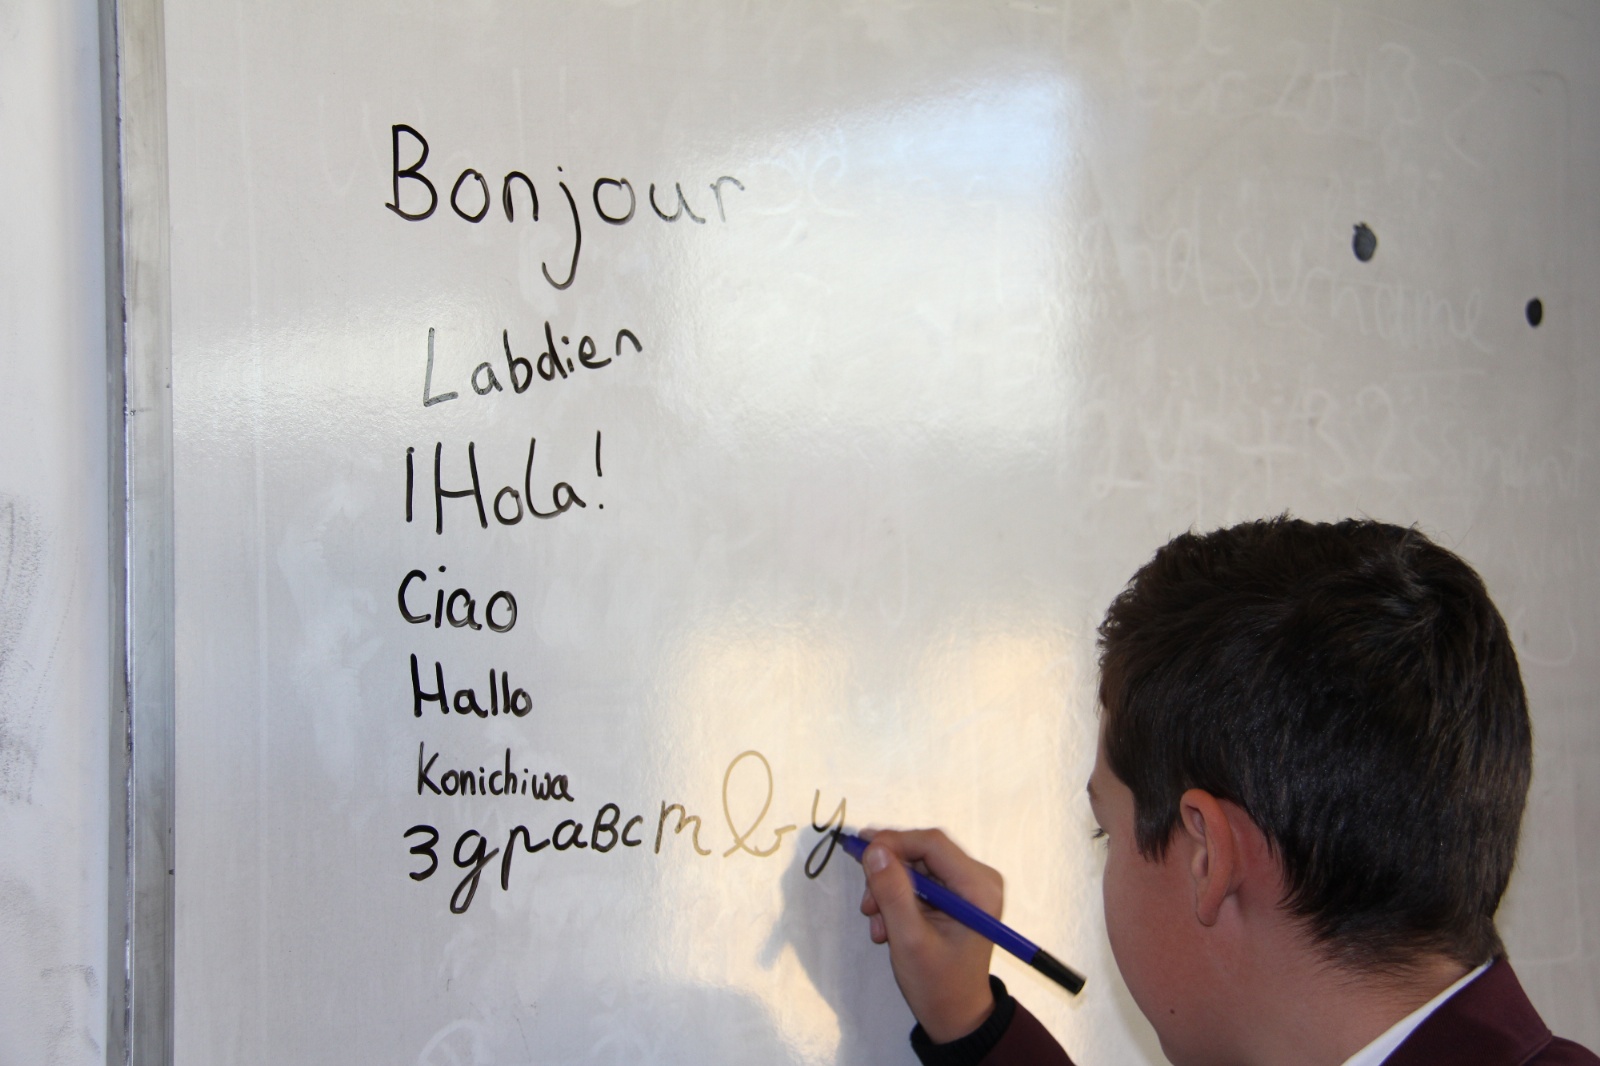 Bonjour
Labdien
¡Hola!
Ciao
Hallo
Konichiwa
Здравству
and surname